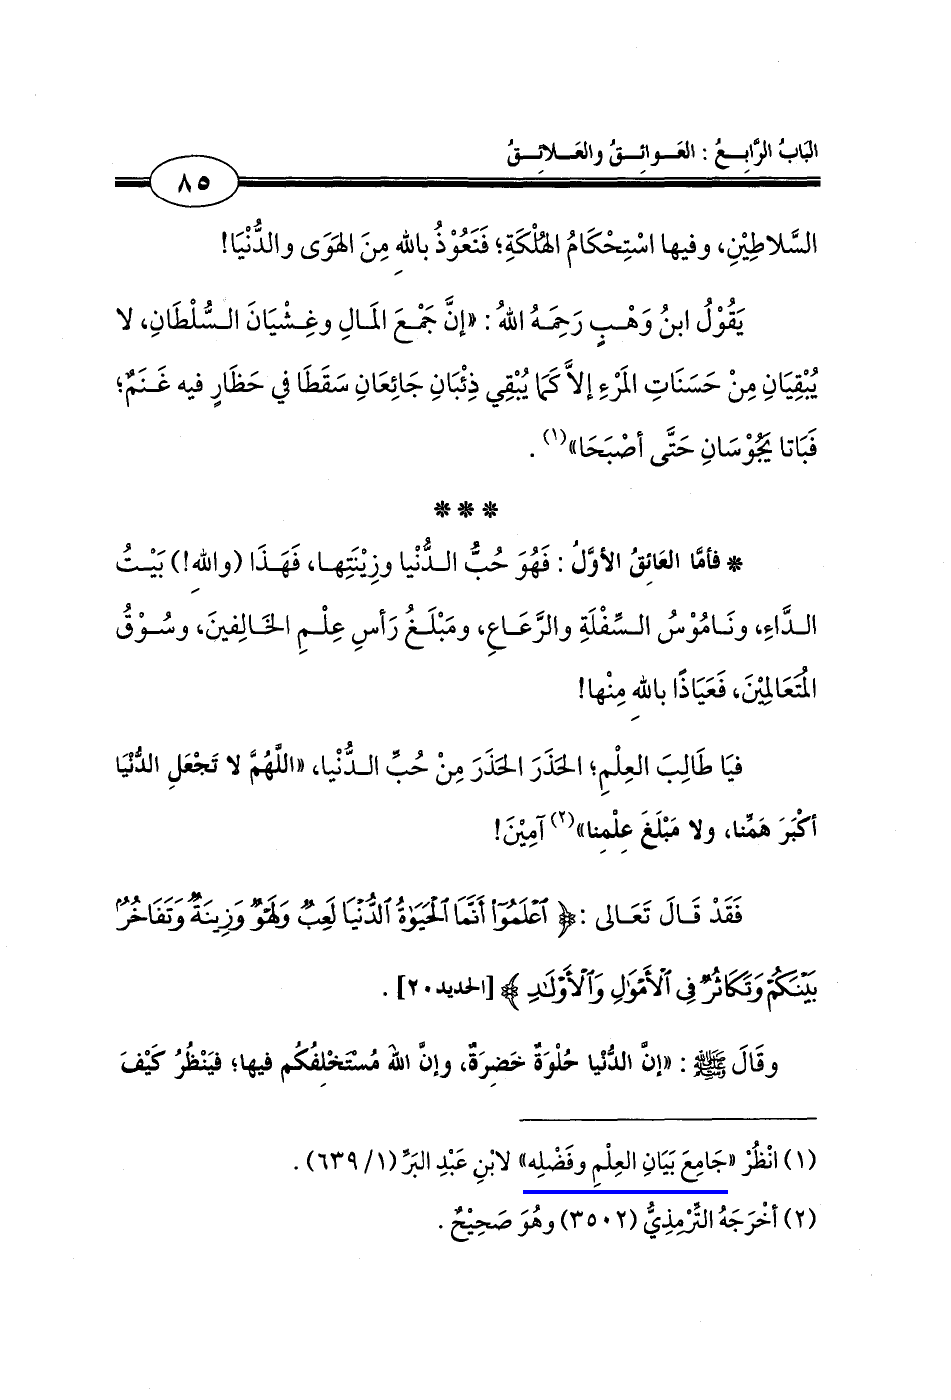 البَابُ الرَّابِعُ : العَوائِقُ والعَلائِقُ
٨٥
السَّلاطِيْنِ، وفيها اسْتِحْكَامُ الهُلْكَةِ؛ فَنَعُوْذُ باللهِ مِنَ الهَوَى والدُّنْيَا!
يَقُوْلُ ابنُ وَهْبٍ رَحِمَهُ اللهُ : «إنَّ جَمْعَ المَالِ وغِشْيَانَ السُّلْطَانِ، لا
يُبْقِيَانِ مِنْ حَسَنَاتِ المَرْءِ إلاَّ كَمَا يُبْقِي ذِئْبَانِ جَائِعَانِ سَقَطَا في حَظَارٍ فيه غَنَمٌ؛
فَبَاتا يَجُوْسَانِ حَتَّى أصْبَحَا»(١) .
* * *
* فأمَّا العَائِقُ الأوَّلُ : فَهُوَ حُبُّ الدُّنْيا وزِيْنَتِها، فَهَذَا (واللهِ!) بَيْتُ
الدَّاءِ، ونَامُوْسُ السِّفْلَةِ والرَّعَاعِ، ومَبْلَغُ رَأسِ عِلْمِ الخَالِفينَ، وسُوْقُ
المُتَعَالِمِيْنَ، فَعَيَاذًا باللهِ مِنْها!
فيَا طَالِبَ العِلْمِ؛ الحَذَرَ الحَذَرَ مِنْ حُبِّ الدُّنْيا، «اللَّهُمَّ لا تَجْعَلِ الدُّنْيَا
أكْبَرَ هَمِّنا، ولا مَبْلَغَ عِلْمِنا»(٢) آمِيْنَ!
فَقَدْ قَالَ تَعَالى : ﴿ ٱعْلَمُوٓا۟ أَنَّمَا ٱلْحَيَوٰةُ ٱلدُّنْيَا لَعِبٌ وَلَهْوٌ وَزِينَةٌ وَتَفَاخُرٌۢ
بَيْنَكُمْ وَتَكَاثُرٌ فِى ٱلْأَمْوَٰلِ وَٱلْأَوْلَٰدِ ﴾ [الحديد٢٠] .
وقَالَ ﷺ : «إنَّ الدُّنْيا حُلْوَةٌ خَضِرَةٌ، وإنَّ اللهَ مُسْتَخْلِفُكُم فيها؛ فيَنْظُرُ كَيْفَ
(١) انْظُرْ «جَامِعَ بَيَانِ العِلْمِ وفَضْلِه» لابْنِ عَبْدِ البَرِّ (١/ ٦٣٩) .
(٢) أخْرَجَهُ التِّرْمِذِيُّ (٣٥٠٢) وهُوَ صَحِيْحٌ .